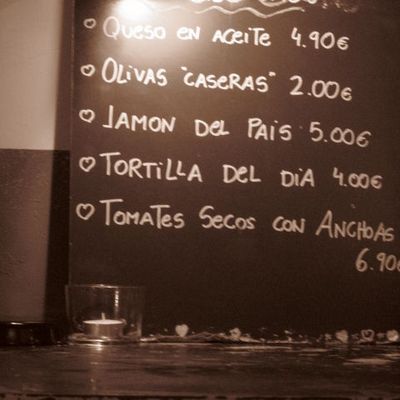 Queso en aceite 4.90€
Olivas "caseras" 2.00€
Jamon del Pais 5.00€
Tortilla del dia 4.00€
Tomates Secos con Anchoas
6.90€